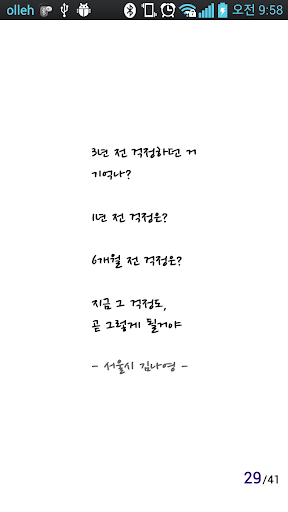 olleh 오전 9:58
3년 전 걱정하던 거
기억나?
1년 전 걱정은?
6개월 전 걱정은?
지금 그 걱정도,
곧 그렇게 될거야
- 서울시 김나영 -
29/41